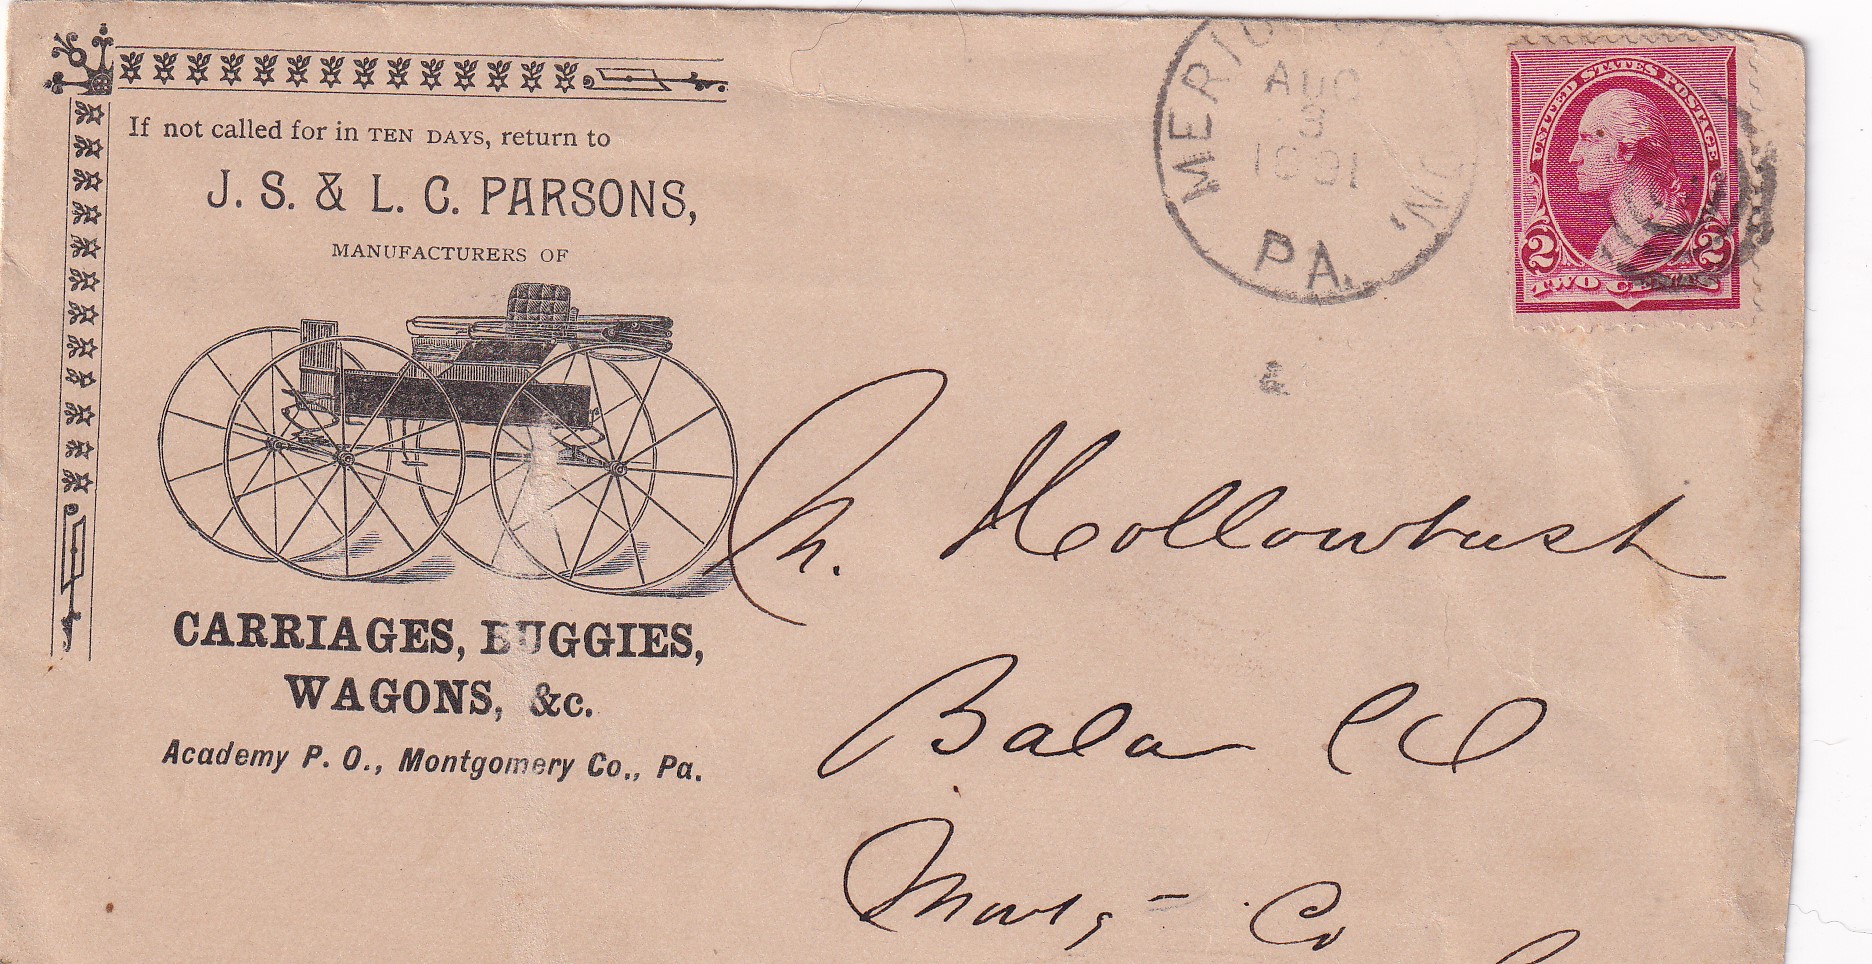 If not called for in TEN DAYS, return to
J. S. & L. C. PARSONS,
MANUFACTURERS OF
CARRIAGES, BUGGIES,
WAGONS, &c.
Academy P. O., Montgomery Co., Pa.
AUG
3
1891
PA.
UNITED STATES POSTAGE
2 2
TWO CENTS
h. Hollowbush
Bala
Montg - Co